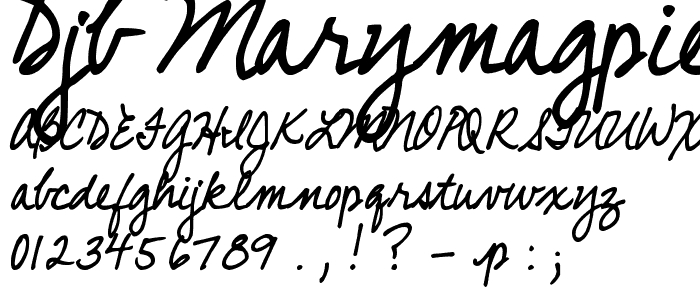 Djb Marymagpie
ABCDEFGHIJKLMNOPQRSTUVWX
abcdefghijklmnopqrstuvwxyz
0123456789 . , ! ? - p : ;